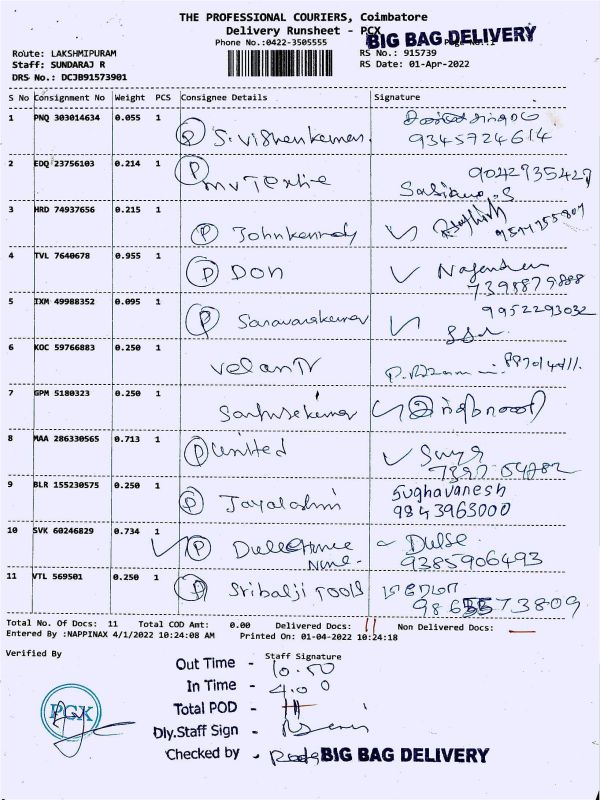 THE PROFESSIONAL COURIERS, Coimbatore
Delivery Runsheet - PCX
BIG BAG DELIVERY
Phone No.:0422-3505555
Route: LAKSHMIPURAM
RS No.: 915739
Staff: SUNDARAJ R
RS Date: 01-Apr-2022
DRS No.: DCJB91573901
S No Consignment No Weight PCS Consignee Details Signature
1 PNQ 303014634 0.055 1 S. Vishnukumar. 9345724614
2 EDQ 23756103 0.214 1 P MV Textile 9042735427
3 HRD 74937656 0.215 1 P John kennedy
4 TVL 7640678 0.955 1 P DON Nagendren
7395879888
5 IXM 49988352 0.095 1 P Saravanakumar 9952293032
6 KOC 59766883 0.250 1 Velan TV
7 GPM 5180323 0.250 1
8 MAA 286330565 0.713 1 P United Surya
9 BLR 155230575 0.250 1 P Jayalashmi Sughavanesh
9843963000
10 SVK 60246829 0.734 1 P Dulse
9385906493
11 VTL 569501 0.250 1 Sribalji TOOLS
Total No. Of Docs: 11 Total COD Amt: 0.00 Delivered Docs: 11 Non Delivered Docs: —
Entered By :NAPPINAX 4/1/2022 10:24:08 AM Printed On: 01-04-2022 10:24:18
Verified By Staff Signature
Out Time - 10.50
In Time - 4.00
Total POD - 11
Dly.Staff Sign -
Checked by - BIG BAG DELIVERY